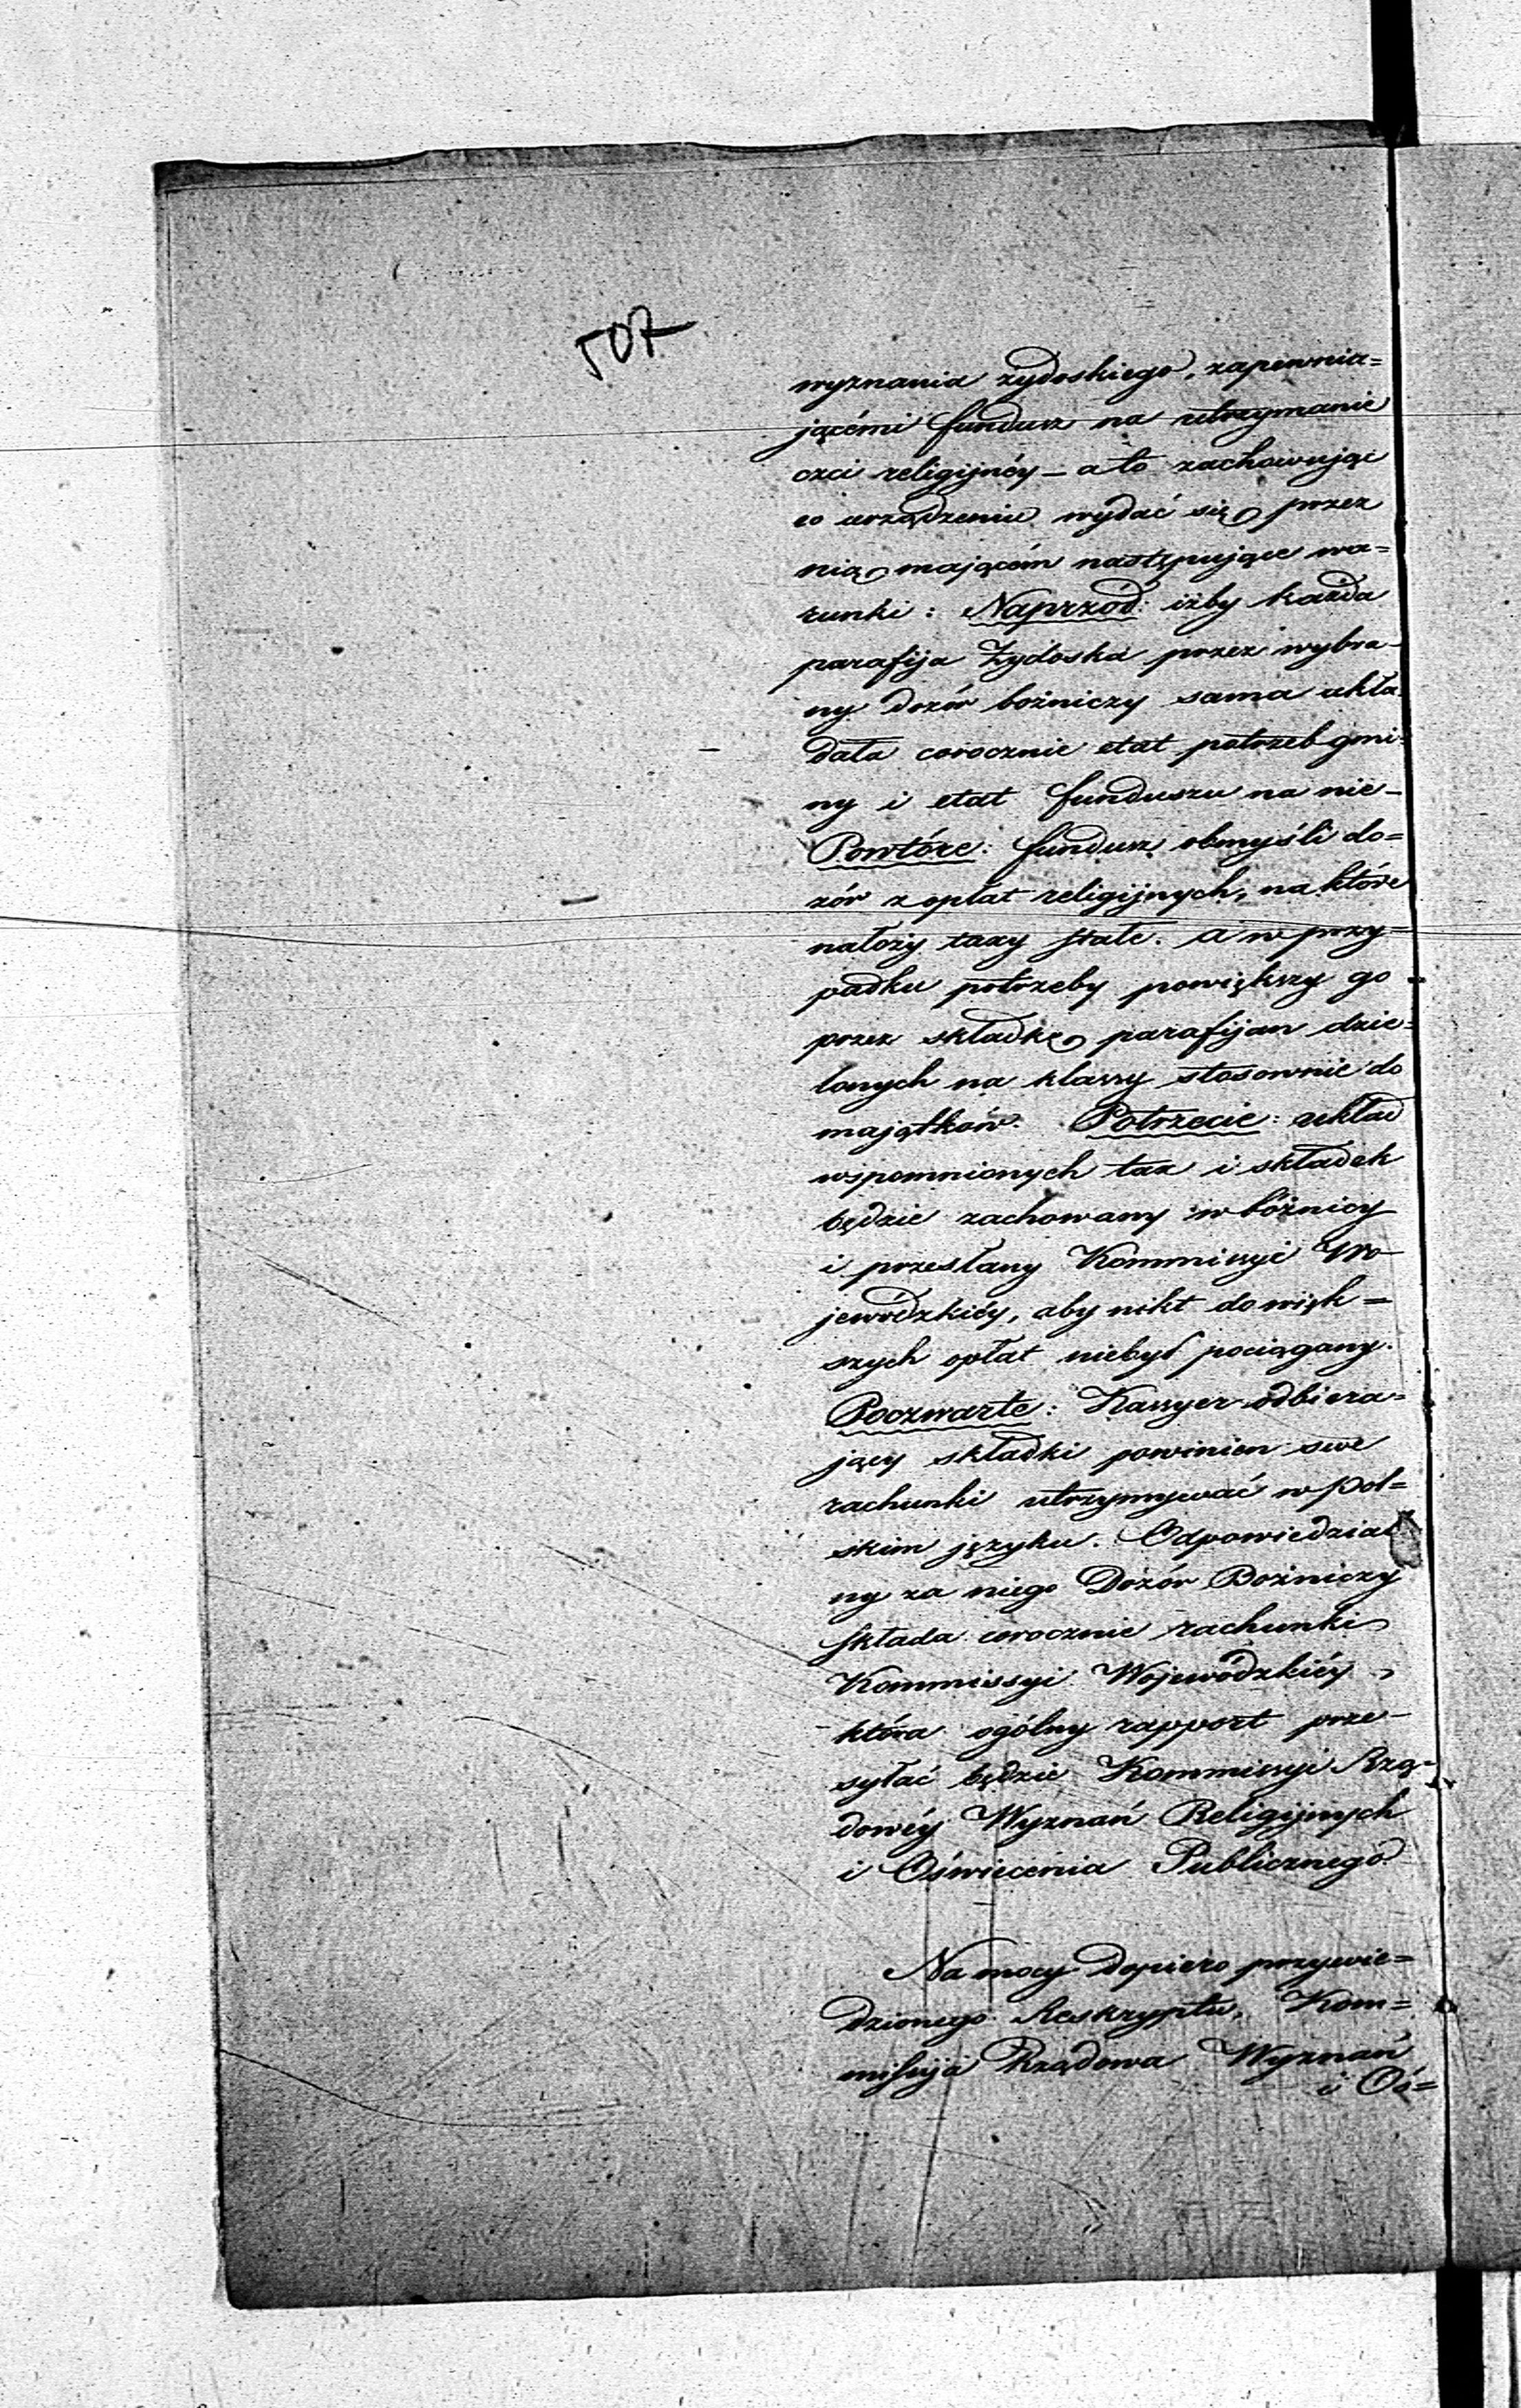 507
wyznania żydoskiego, zapewnia=
jącémi fundusz na utrzymanie
czci religijnéy — a to zachowując
co urządzeniu wydać się przez
nią mającém następujące wa=
runki: Naprzód: iżby każda
parafija Żydoska przez wybra-
ny dozór bożniczy sama ukła-
dała corocznie etat potrzeb gmi=
ny i etat funduszu na nie —
Powtóre: fundusz obmyśli do=
zór z opłat religijnych, na które
nałoży taxy stałe. a w przy=
padku potrzeby powiększy go
przez składkę parafijan dzie=
lonych na klassy stosownie do
majątków. Potrzecie: układ
wspomnionych tax i składek
będzie zachowany w bóżnicy
i przesłany Kommissyi Wo-
jewódzkiéy, aby nikt do więk=
szych opłat niebył pociągany.
Poczwarte: Kassyer odbiera=
jący składki powinien swe
rachunki utrzymywać w pol=
skim języku. Odpowiedzial
ny za niego Dozór Bożniczy
składa corocznie rachunki
Kommissyi Wojewódzkiéy,
która ogólny rapport prze-
syłać będzie Kommissyi Rzą=
dowéy Wyznań Religijnych
i Oświecenia Publicznego
Na mocy dopiero przywie=
dzionego Reskryptu, Kom=
missyja Rządowa Wyznań
i Oś=